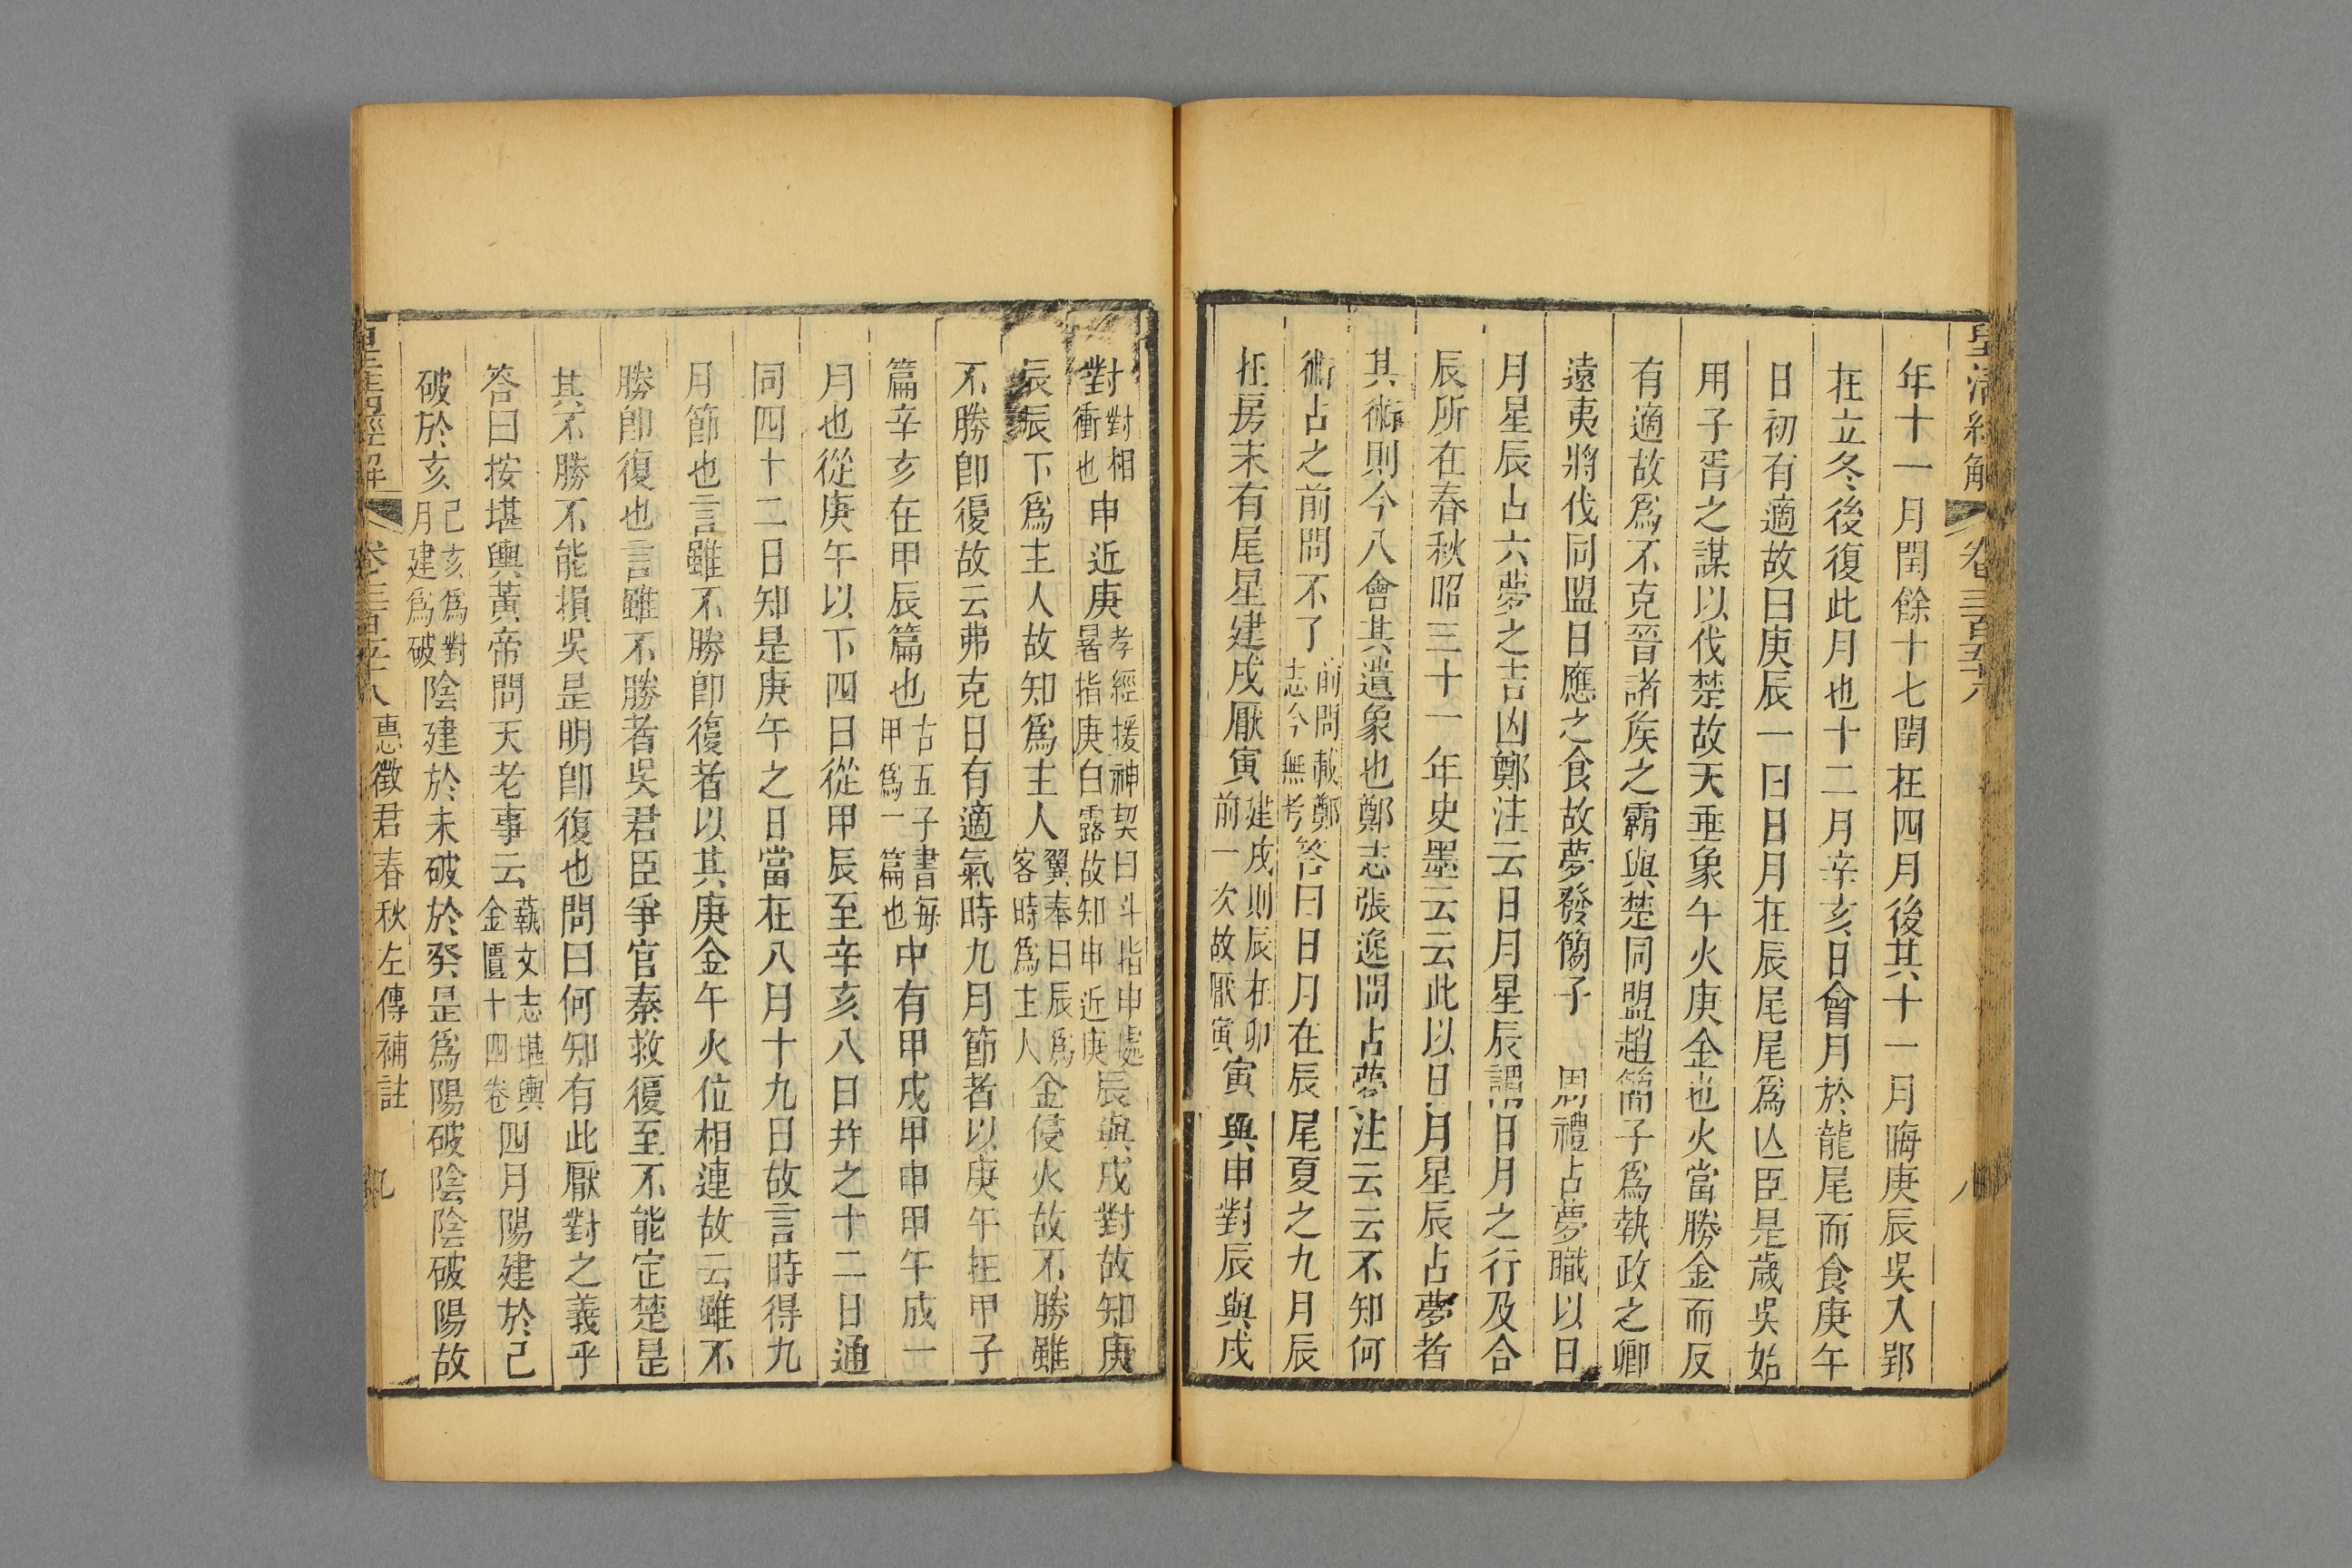 皇清經解 卷三百五十八 八
年十一月閏餘十七閏在四月後其十一月晦庚辰吳入郢
在立冬後復此月也十二月辛亥日會月於龍尾而食庚午
日初有適故曰庚辰一日日月在辰尾尾為亾臣是歲吳始
用子胥之謀以伐楚故天垂象午火庚金也火當勝金而反
有適故為不克晉諸矦之霸與楚同盟趙簡子為執政之卿
遠夷將伐同盟日應之食故夢發簡子 周禮占夢職以日
月星辰占六夢之吉凶鄭注云日月星辰謂日月之行及合
辰所在春秋昭三十一年史墨云云此以日月星辰占夢者
其術則今八會其遺象也鄭志張逸問占夢注云云不知何
術占之前問不了前問載鄭志今無考答曰日月在辰尾夏之九月辰
在房末有尾星建戌厭寅建戌則辰在卯前一次故厭寅寅與申對辰與戌
對對相衝也申近庚孝經援神契曰斗指申處暑指庚白露故知申近庚辰與戌對故知庚
辰辰下為主人故知為主人翼奉曰辰為客時為主人金侵火故不勝雖
不勝即復故云弗克日有適氣時九月節者以庚午在甲子
篇辛亥在甲辰篇也古五子書每甲為一篇也中有甲戌甲申甲午成一
月也從庚午以下四日從甲辰至辛亥八日并之十二日通
同四十二日知是庚午之日當在八月十九日故言時得九
月節也言雖不勝即復者以其庚金午火位相連故云雖不
勝即復也言雖不勝者吳君臣爭官秦救復至不能定楚是
其不勝不能損吳是明即復也問曰何知有此厭對之義乎
答曰按堪輿黃帝問天老事云蓺文志堪輿金匱十四卷四月陽建於己
破於亥己亥為對月建為破陰建於未破於癸是為陽破陰陰破陽故
皇清經解 卷三百五十八 惠徵君春秋左傳補註 九